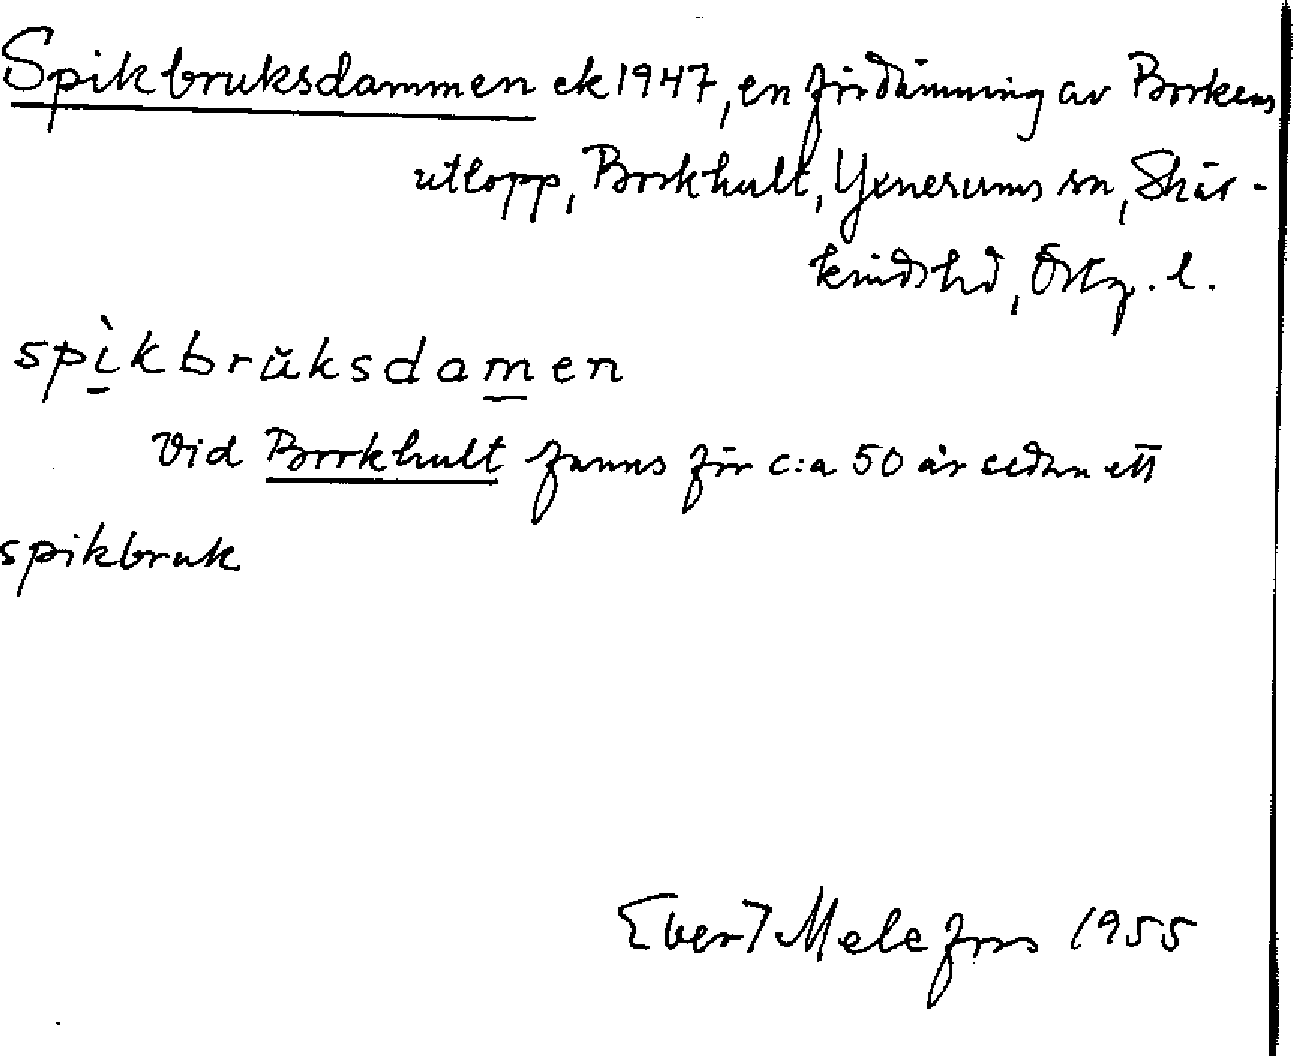 Spikbruksdammen ek 1947, en fördämning av Borkens
utlopp, Borkhult, Yxnerums sn, Skär-
kinds hd, Östg. l.
spìkbrŭksdamen
Vid Borkhult fanns för c:a 50 år sedan ett
spikbruk
Evert Melefors 1955